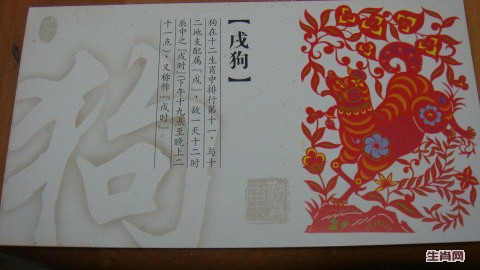 【戌狗】
狗在十二生肖中排行第十一，与十
二地支配属『戌』，故一天十二时
辰中之『戌时』（下午十九点至晚上二
十一点），又称作『戌时』。
狗
生肖网